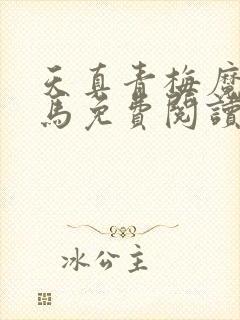 天真青梅魔
馬免費閱讀
冰公主